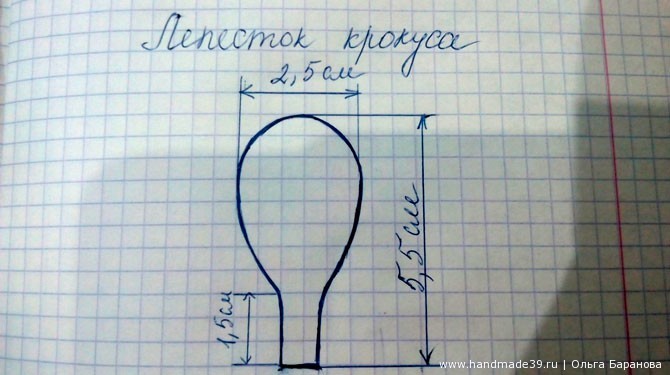 Лепесток крокуса
2,5см
5,5см
1,5см
www.handmade39.ru | Ольга Баранова